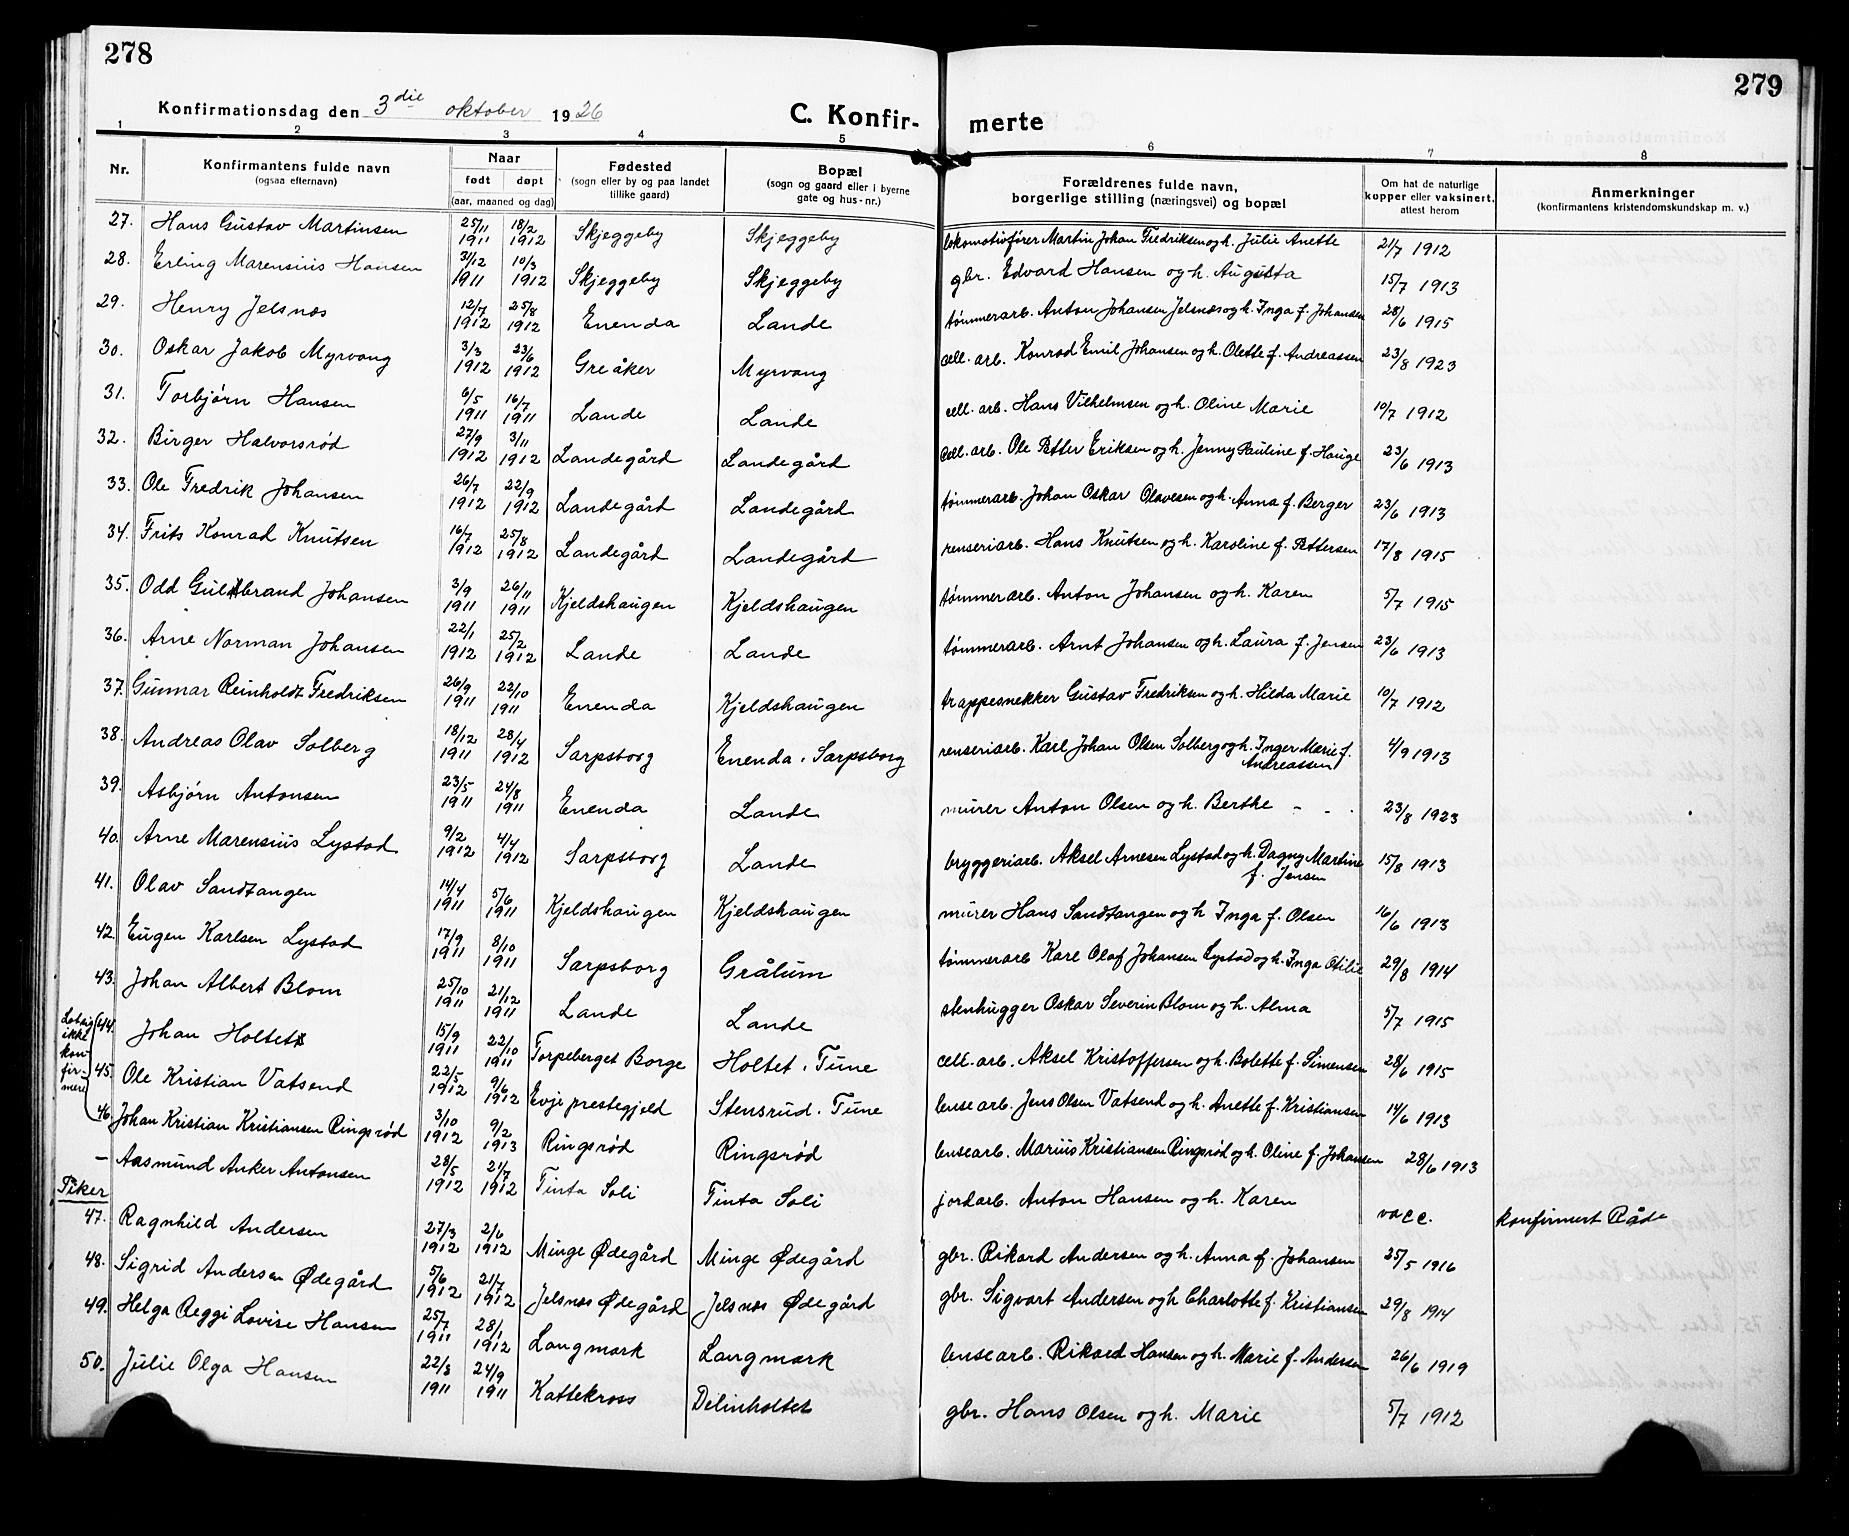 278
279
Konfirmationsdag den 3die oktober 1926
C. Konfir- merte
1 2 3 4 5 6 7 8
Nr. Konfirmantens fulde navn (ogsaa efternavn) Naar født døpt (aar, maaned og dag) Fødested (sogn eller by og paa landet tillike gaard) Bopæl (sogn og gaard eller i byerne gate og hus-nr.) Forældrenes fulde navn, borgerlige stilling (næringsvei) og bopæl Om hat de naturlige kopper eller vaksinert, attest herom Anmerkninger (konfirmantens kristendomskundskap m. v.)
27. Hans Gustav Martinsen 25/11 1911 18/2 1912 Skjeggeby Skjeggeby lokomotivfører Martin Johan Fredriksen og h. Julie Anette 21/7 1912
28. Erling Marensius Hansen 31/12 1911 10/3 1912 Skjeggeby Skjeggeby gbr. Edvard Hansen og h. Augusta 15/7 1913
29. Henry Jelsnæs 12/7 1912 25/8 1912 Enenda Lande tømmerarb. Anton Johansen Jelsnæs og h. Inga f. Johansen 28/6 1915
30. Oskar Jakob Myrvang 3/3 1912 23/6 1912 Greåker Myrvang cell. arb. Konrad Emil Johansen og h. Olette f. Andreassen 23/8 1923
31. Torbjørn Hansen 6/5 1911 16/7 1911 Lande Lande cell. arb. Hans Vilhelmsen og h. Oline Marie 10/7 1912
32. Birger Halvorsrød 27/9 1912 3/11 1912 Landegård Landegård cell. arb. Ole Petter Eriksen og h. Jenny Pauline f. Hauge 23/6 1913
33. Ole Fredrik Johansen 26/7 1912 22/9 1912 Landegård Landegård tømmerarb. Johan Oskar Olavesen og h. Anna f. Berger 23/6 1913
34. Frits Konrad Knutsen 16/7 1912 25/8 1912 Landegård Landegård renseriarb. Hans Knutsen og h. Karoline f. Pettersen 17/8 1915
35. Odd Gulbrand Johansen 3/9 1911 26/11 1911 Kjeldshaugen Kjeldshaugen tømmerarb. Anton Johansen og h. Karen 5/7 1915
36. Arne Norman Johansen 22/1 1912 25/2 1912 Lande Lande tømmerarb. Arnt Johansen og h. Laura f. Jensen 23/6 1913
37. Gunnar Reinholdt Fredriksen 26/9 1911 22/10 1911 Enenda Kjeldshaugen trappesnekker Gustav Fredriksen og h. Hilda Marie 10/7 1912
38. Andreas Olav Solberg 18/12 1911 28/4 1912 Sarpsborg Enenda, Sarpsborg renseriarb. Karl Johan Olsen Solberg og h. Inger Marie f. Andreassen 4/9 1913
39. Asbjørn Antonsen 23/5 1911 24/8 1911 Enenda Lande murer Anton Olsen og h. Berthe - - . 23/8 1923
40. Arne Marensius Lystad 9/2 1912 4/4 1912 Sarpsborg Lande bryggeriarb. Aksel Arnesen Lystad og h. Dagny Martine f. Jensen 15/8 1913
41. Olav Sandtangen 14/4 1911 5/6 1911 Kjeldshaugen Kjeldshaugen murer Hans Sandtangen og h Inga f. Olsen 16/6 1913
42. Eugen Karlsen Lystad 17/9 1911 8/10 1911 Sarpsborg Grålum tømmerarb Karl Olaf Johansen Lystad og h. Inga Otilie 29/8 1914
43. Johan Albert Blom 25/10 1911 21/12 1911 Lande Lande stenhugger Oskar Severin Blom og h. Alma 5/7 1915
ikke kon- fir- mere
44. Johan Holtet 15/9 1911 22/10 1911 Torpeberget Borge Holtet, Tune cell. arb. Aksel Kristoffersen og h. Bolette f. Simensen 28/6 1915
45. Ole Kristian Vatsend 22/5 1912 9/6 1912 Evje prestegjeld Stensrud, Tune lensearb. Jens Olsen Vatsend og h. Anette f. Kristiansen 14/6 1913
46. Johan Kristian Kristiansen Ringsrød 3/10 1912 9/2 1913 Ringsrød Ringsrød lensearb. Marius Kristiansen Ringsrød og h. Oline f. Johansen 28/6 1913
— Aasmund Anker Antonsen 28/5 1912 21/7 1912 Tinta Soli Tinta Soli jordarb. Anton Hansen og h. Karen vacc. konfirmert Råde
Piker
47. Ragnhild Andersen 27/3 1912 2/6 1912 Minge Ødegård Minge Ødegård gbr. Rikard Andersen og h. Anna f. Johansen 25/5 1916
48. Sigrid Andersen Ødegård 5/6 1912 21/7 1912 Jelsnæs Ødegård Jelsnæs Ødegård gbr. Sigvart Andersen og h Charlotte f. Kristiansen 29/8 1914
49. Helga Peggi Lovise Hansen 25/7 1911 28/1 1912 Langmark Langmark lensearb. Rikard Hansen og h. Marie f. Andersen 26/6 1919
50. Julie Olga Hansen 22/8 1911 24/9 1911 Kattekross Delinholtet gbr. Hans Olsen og h. Marie 5/7 1912